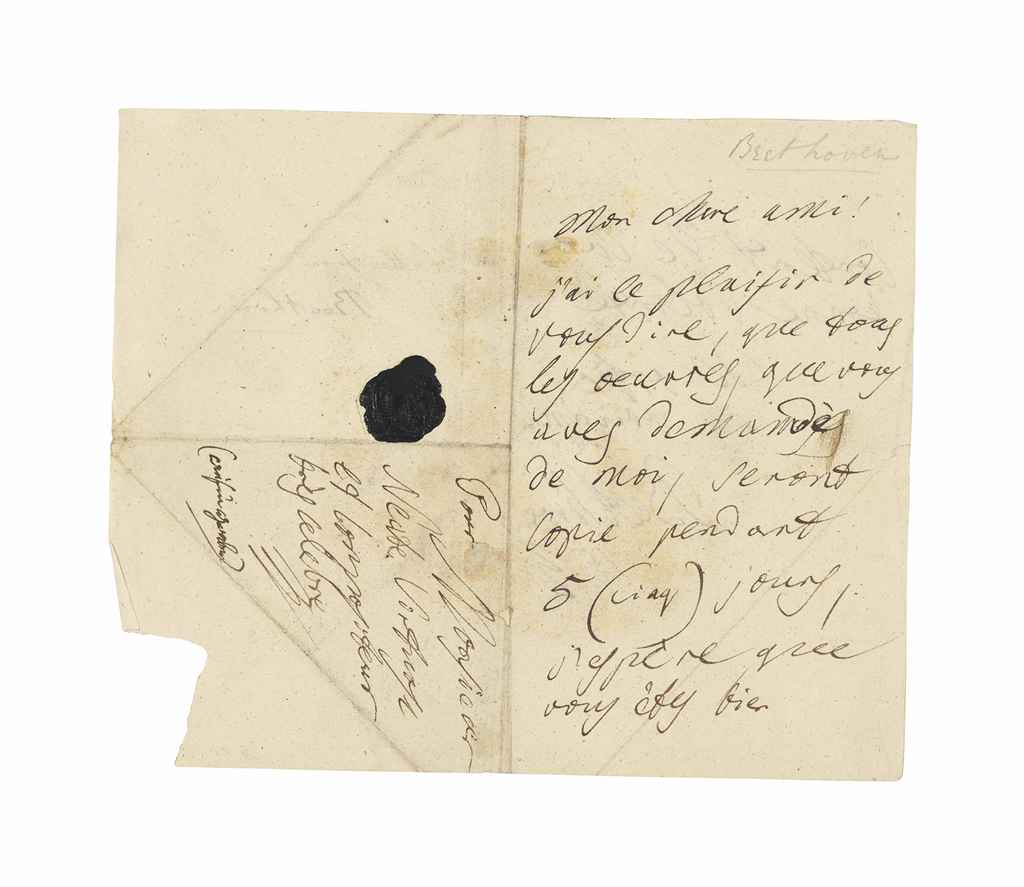 Beethoven
Mon chere ami!
j'ai le plaisir de
vous dire, que tous
les oeuvres, que vous
aves demandès
de moi, seront
copie pendant
5 (cinq) jours,
j'espère que
vous étes bien
Pour Monsieur
Neate Virtuose
et Compositeur
très celebre